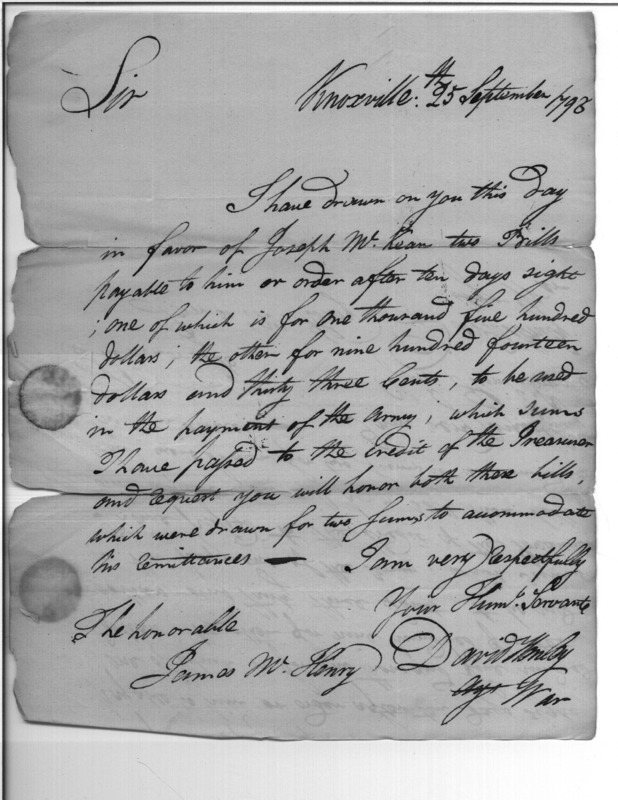 Sir Knoxville. 25th September 1798
I have drawn on you this Day
in favor of Joseph Mc. Kean two Bills
payable to him or order after ten days sight
; one of which is for one thousand five hundred
dollars; the other for nine hundred fourteen
dollars and thirty three Cents, to be used
in the payment of the Army; which sums
I have passed to the Credit of the Treasurer
and request you will honor both these bills,
which were drawn for two sums to accommodate
his remittances — I am very respectfully
Your Humb. Servant
The honorable
James Mc. Henry David Henley
agt War